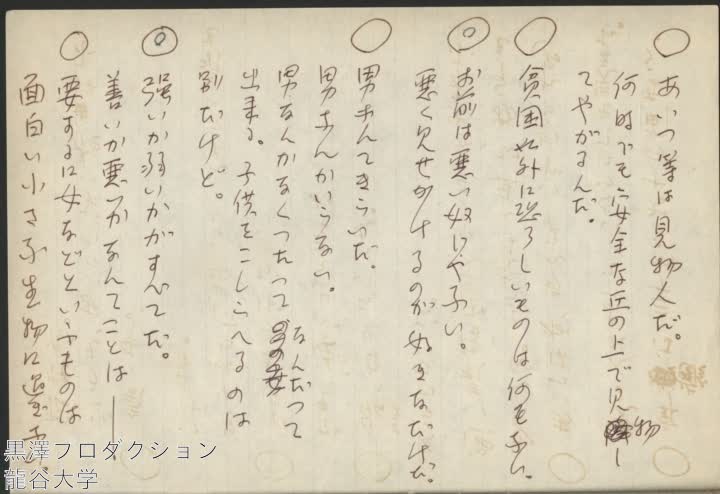 ○ あいつ等は見物人だ。
何時でも安全な丘の上で見物し
てやがるんだ。
○ 貧困以外に恐ろしいものは何もない。
◎ お前は悪い奴ぢやない。
悪く見せかけるのが好きなだけだ。
○ 男なんてきらいだ。
男なんかいらない。
男なんかなくつたつて なんだつて
出来る。子供をこしらへるのは
別だけど。
◎ 強いか弱いかがすべてだ。
善いか悪いかなんてことは──
○ 要するに女などといふものは
面白い小さな生物に過ぎない。
黒澤プロダクション
龍谷大学